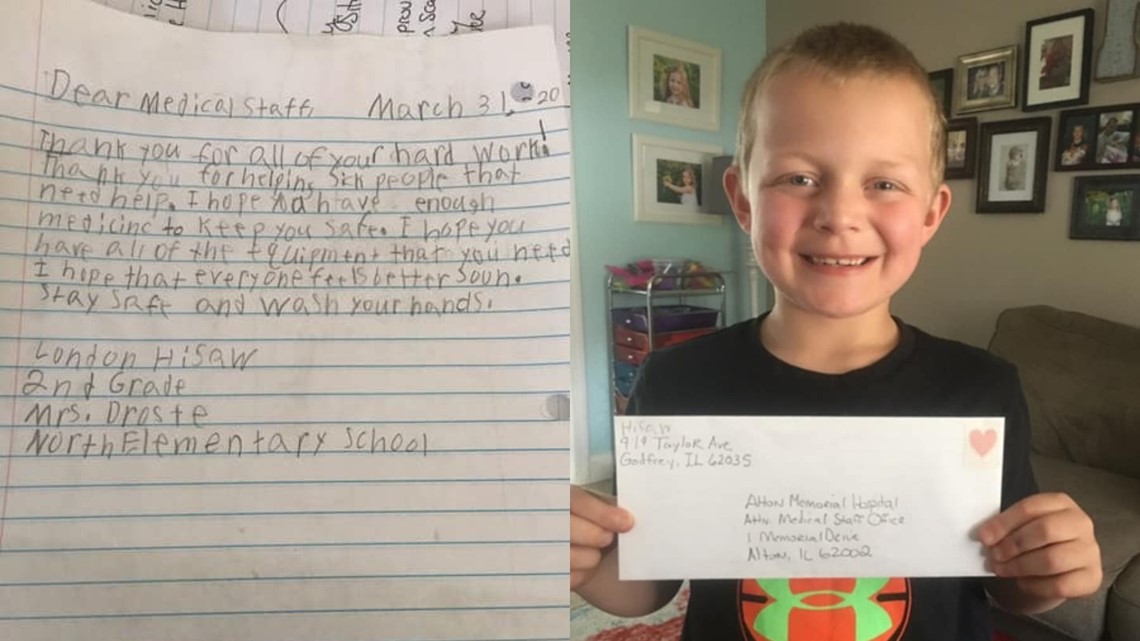 Dear Medical Staff, March 31, 20
Thank you for all of your hard work!
Thank you for helping sick people that
need help. I hope have enough
medicine to keep you safe. I hope you
have all of the equipment that you need
I hope that everyone feels better soun.
Stay safe and wash your hands.
London Hisaw
2nd Grade
Mrs. Droste
North Elementary School
Hisaw
919 Taylor Ave
Godfrey, IL 62035
Alton Memorial Hospital
Attn. Medical Staff Office
1 Memorial Drive
Alton, IL 62002